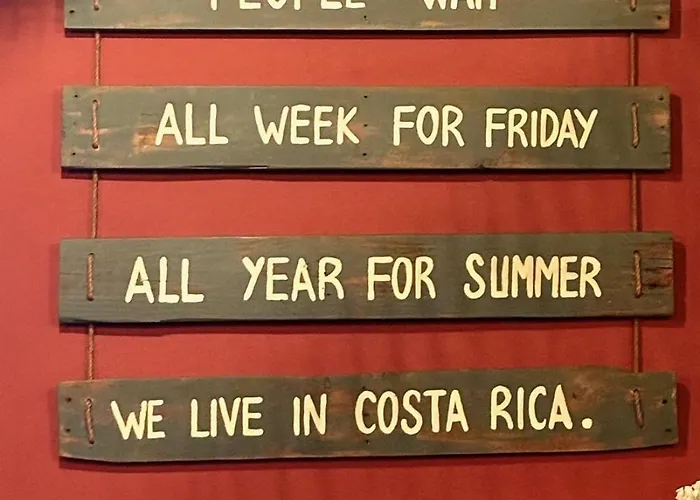 PEOPLE WAIT
ALL WEEK FOR FRIDAY
ALL YEAR FOR SUMMER
WE LIVE IN COSTA RICA.